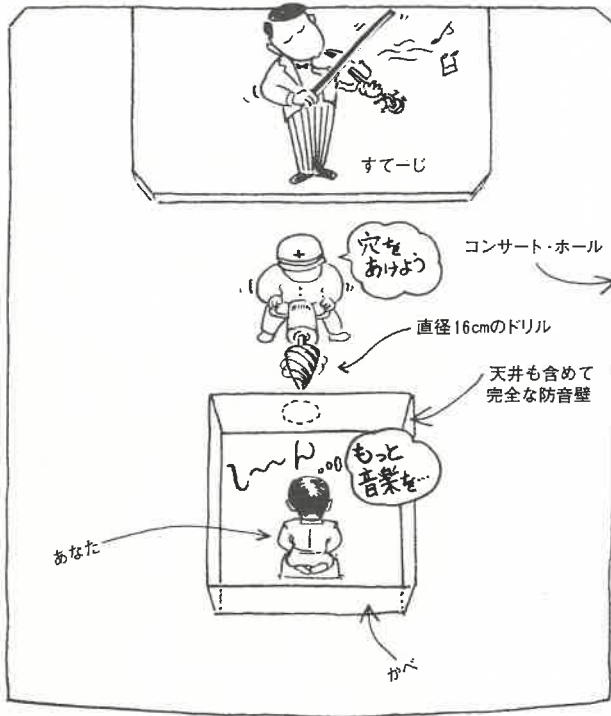 すてーじ
穴を
あけよう
コンサート・ホール
直径16cmのドリル
天井も含めて
完全な防音壁
し〜ん…
もっと
音楽を…
あなた
かべ